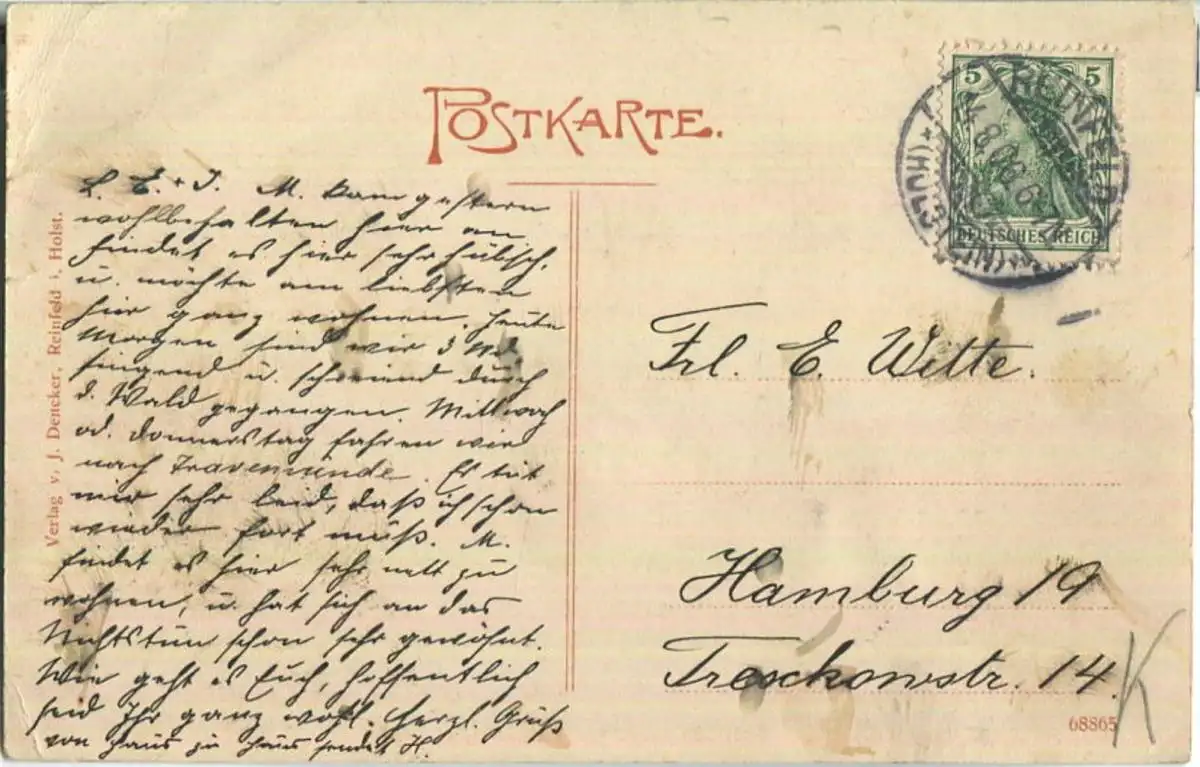 POSTKARTE.
5 5
DEUTSCHES REICH
REINFELD
8.06.6
L. E. + J. M. kam gestern
wohlbehalten hier an
findet es hier sehr hübsch.
u. möchte am liebsten
hier ganz wohnen. Heute
Morgen sind wir 3
singend u. schreiend durch
d. Wald gegangen. Mittwoch
od. Donnerstag fahren wir
nach Travemünde. Es tut
mir sehr leid, daß ich schon
wieder fort muß. M.
findet es hier sehr nett zu
wohnen, u. hat sich an das
Nichtstun schon sehr gewöhnt.
Wie geht es Euch, hoffentlich
seid Ihr ganz wohl. Herzl. Gruß
von Haus zu Haus sendet H.
Verlag v. J. Dencker, Reinfeld i. Holst.
Frl. E. Witte.
Hamburg 19
Treskowstr. 14.
K
68865